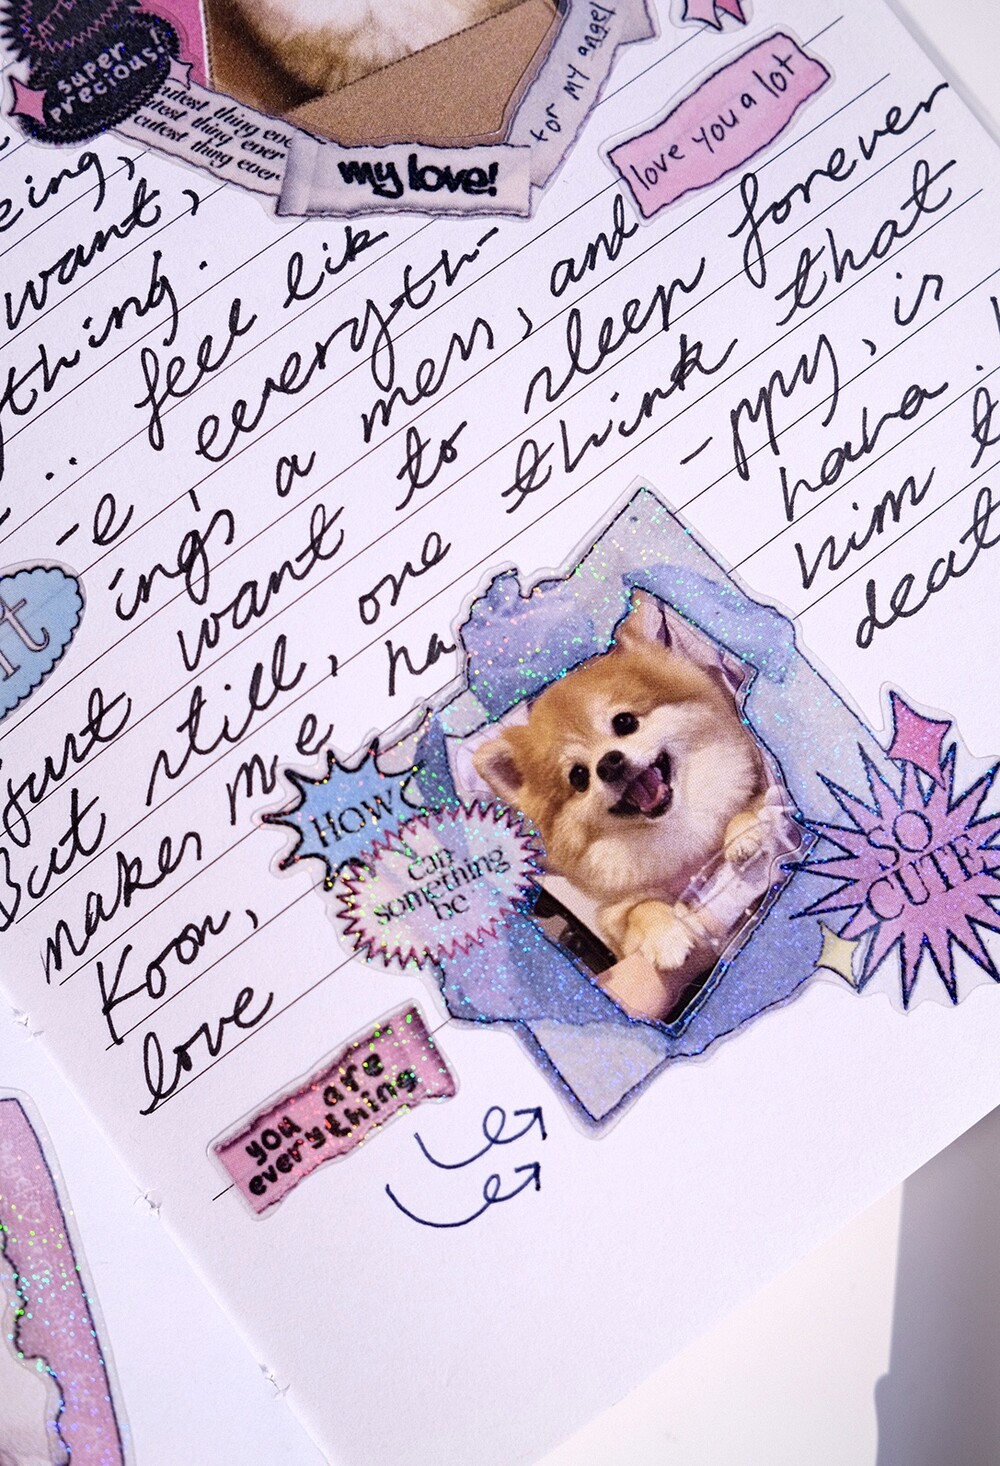 super
precious!
cutest thing ever
cutest thing ever
my love!
for my angel
love you a lot
want,
.. feel lik
-e everyth-
ing's a mess, and
just want to sleep forever
But still, one think that
makes me ha -ppy, is
Koon, haha.
love him
HOW
can
something
be
SO
CUTE
you are
everything